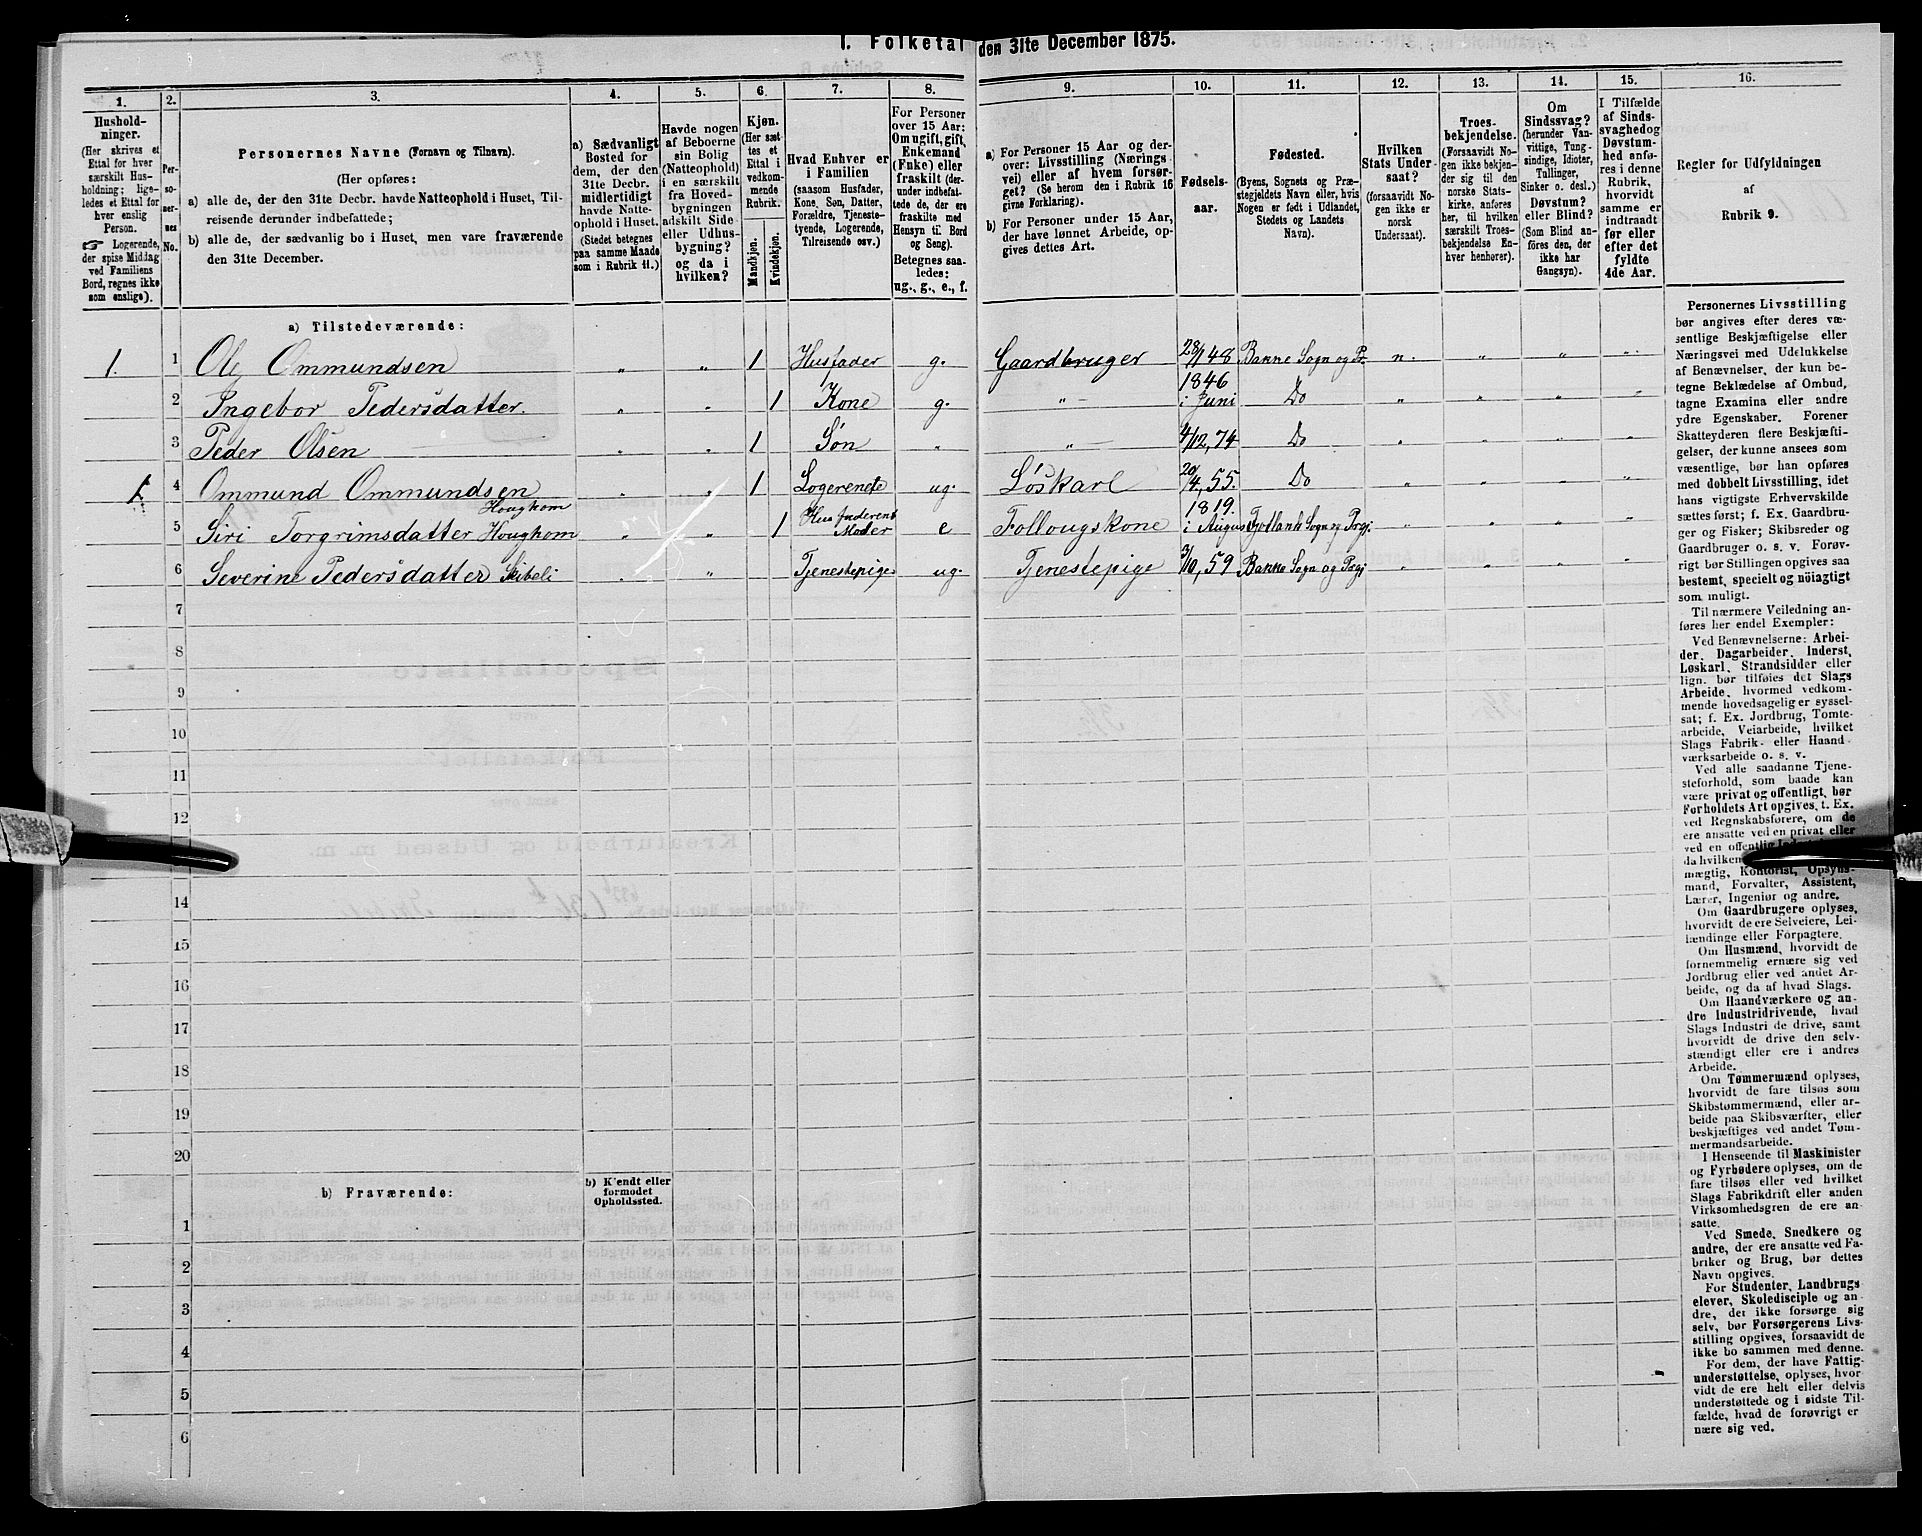 1. Folketal den 31te December 1875.
1. 2. 3. 4. 5. 6. 7. 8. 9. 10. 11. 12. 13. 14. 15. 16.
Hushold-
ninger.
(Her skrives et
Ettal for hver
særskilt Hus-
holdning; lige-
ledes et Ettal for
hver enslig
Person.
☛ Logerende,
der spise Middag
ved Familiens
Bord, regnes ikke
som enslige).
Per-
so-
ner-
nes
No.
Personernes Navne (Fornavn og Tilnavn).
(Her opføres:
a) alle de, der den 31te Decbr. havde Natteophold i Huset, Til-
reisende derunder indbefattede;
b) alle de, der sædvanlig bo i Huset, men vare fraværende
den 31te December.
a) Sædvanligt
Bosted for
dem, der den
31te Decbr.
midlertidigt
havde Natte-
ophold i Huset.
(Stedet betegnes
paa samme Maade
som i Rubrik 11.)
Havde nogen
af Beboerne
sin Bolig
(Natteophold)
i en særskilt
fra Hoved-
bygningen
adskilt Side-
eller Udhus-
bygning?
og da i
hvilken?
Kjøn.
(Her sæt-
tes et
Ettal i
vedkom-
mende
Rubrik.
Mandkjøn.
Kvindekjøn.
Hvad Enhver er
i Familien
(saasom Husfader,
Kone, Søn, Datter,
Forældre, Tjeneste-
tyende, Logerende,
Tilreisende osv.)
For Personer
over 15 Aar:
Om ugift, gift,
Enkemand
(Enke) eller
fraskilt (der-
under indbefat-
tede de, der ere
fraskilte med
Hensyn til Bord
og Seng).
Betegnes saa-
ledes:
ug., g., e., f.
a) For Personer 15 Aar og der-
over: Livsstilling (Nærings
vei) eller af hvem forsør-
get? (Se herom den i Rubrik 16
givne Forklaring).
b) For Personer under 15 Aar,
der have lønnet Arbeide, op-
gives dettes Art.
Fødsels-
aar.
Fødested.
(Byens, Sognets og Præ-
stegjeldets Navn eller, hvis
Nogen er født i Udlandet,
Stedets og Landets
Navn).
Hvilken
Stats Under-
saat?
(forsaavidt No-
gen ikke er
norsk
Undersaat).
Troes-
bekjendelse.
(Forsaavidt No-
gen ikke bekjen-
der sig til den
norske Stats-
kirke, anføres
her, til hvilken
særskilt Troes-
bekjendelse En-
hver henhører).
Om
Sindssvag?
(herunder Van-
vittige, Tung-
sindige, Idioter,
Tullinger,
Sinker o. desl.)
Døvstum?
eller Blind?
(Som Blind an-
føres den, der
ikke har
Gangsyn).
I Tilfælde
af Sinds-
svaghed og
Døvstum-
hed anfø-
res i denne
Rubrik,
hvorvidt
samme er
indtraadt
før eller
efter det
fyldte
4de Aar.
Regler for Udfyldningen
af
Rubrik 9.
a) Tilstedeværende:
1. 1 Ole Ommundsen " " 1 Husfader g. Gaardbruger 28/1 48 Bakke Sogn og Pr. n. " " "
2 Ingebor Pedersdatter. " " 1 Kone g. " 1846 i Juni Do " " " "
3 Peder Olsen " " 1 Søn " " 4/12, 74 Do " " " "
1. 4 Ommund Ommundsen Houghom " " 1 Logerende ug. Løskarl 20/4, 55. Do " " " "
5 Siri Torgrimsdatter Houghom " " 1 Husfaderens Moder e Follougskone 1819. i August Fjotland Sogn og Prgj. " " " "
6 Severine Pedersdatter Skibeli " " Tjenestepige ug. Tjenestepige 3/10, 59 Bakke Sogn og Prgj " " " "
7
8
9
10
11
12
14
15
16
17
18
19
20
b) Fraværende:
b) Kjendt eller
formodet
Opholdssted.
1
2
3
4
5
6
Personernes Livsstilling
bør angives efter deres væ-
sentlige Beskjæftigelse eller
Næringsvei med Udelukkelse
af Benævnelser, der kun be-
tegne Beklædelse af Ombud,
tagne Examina eller andre
ydre Egenskaber. Forener
Skatteyderen flere Beskjæfti-
gelser, der kunne ansees som
væsentlige, bør han opføres
med dobbelt Livsstilling, idet
hans vigtigste Erhvervskilde
sættes først; f. Ex. Gaardbru-
ger og Fisker; Skibsreder og
Gaardbruger o. s. v. Forøv-
rigt bør Stillingen opgives saa
bestemt, specielt og nöiagtigt
som muligt.
Til nærmere Veiledning an-
føres her endel Exempler:
Ved Benævnelserne: Arbei-
der, Dagarbeider, Inderst,
Løskarl, Strandsidder eller
lign. bør tilføies det Slags
Arbeide, hvormed vedkom-
mende hovedsagelig er syssel-
sat; f. Ex. Jordbrug, Tomte-
arbeide, Veiarbeide, hvilket
Slags Fabrik- eller Haand-
værksarbeide o. s. v.
Ved alle saadanne Tjene-
steforhold, som baade kan
være privat og offentligt, bør
Forholdets Art opgives, t. Ex.
ved Regnskabsførere, om de
ere ansatte ved en privat eller
ved en offentlig
da hvilken
mægtig, Kontorist, Opsyns-
mand, Forvalter, Assistent,
Lærer, Ingeniør og andre.
Om Gaardbrugere oplyses,
hvorvidt de ere Selveiere, Lei-
lændinge eller Forpagtere.
Om Husmænd, hvorvidt de
fornemmelig ernære sig ved
Jordbrug eller ved andet Ar-
beide, og da af hvad Slags.
Om Haandværkere og an-
dre Industridrivende, hvad
Slags Industri de drive, samt
hvorvidt de drive den selv-
stændigt eller ere i andres
Arbeide.
Om Tømmermænd oplyses,
hvorvidt de fare tilsøs som
Skibstømmermænd, eller ar-
beide paa Skibsværfter, eller
beskjæftiges ved andet Tøm-
mermandsarbeide.
I Henseende til Maskinister
og Fyrbødere oplyses, om de
fare tilsøs eller ved hvilket
Slags Fabrikdrift eller anden
Virksomhedsgren de ere an-
satte.
Ved Smede, Snedkere og
andre, der ere ansatte ved Fa-
briker og Brug, bør dettes
Navn opgives.
For Studenter, Landbrugs-
elever, Skoledisciple og an-
dre, det ikke forsørge sig
selv, bør Forsørgerens Livs-
stilling opgives, forsaavidt de
ikke bo sammen med denne.
For dem, der have Fattig-
understøttelse, oplyses, hvor-
vidt de ere helt eller delvis
understøttede og i sidste Til-
fælde, hvad de forøvrigt er
nære sig ved.